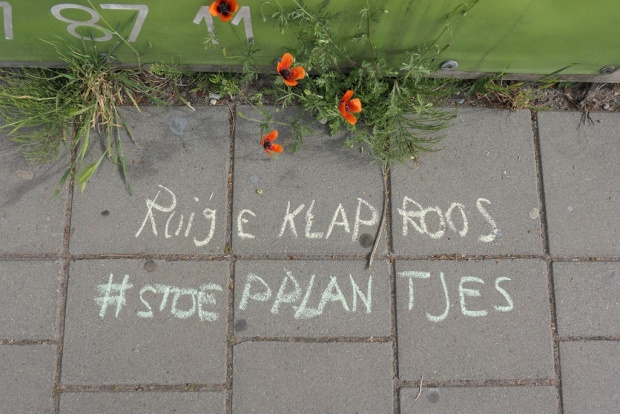 1 87 11
Ruige KLAPROOS
#STOEPPLANTJES